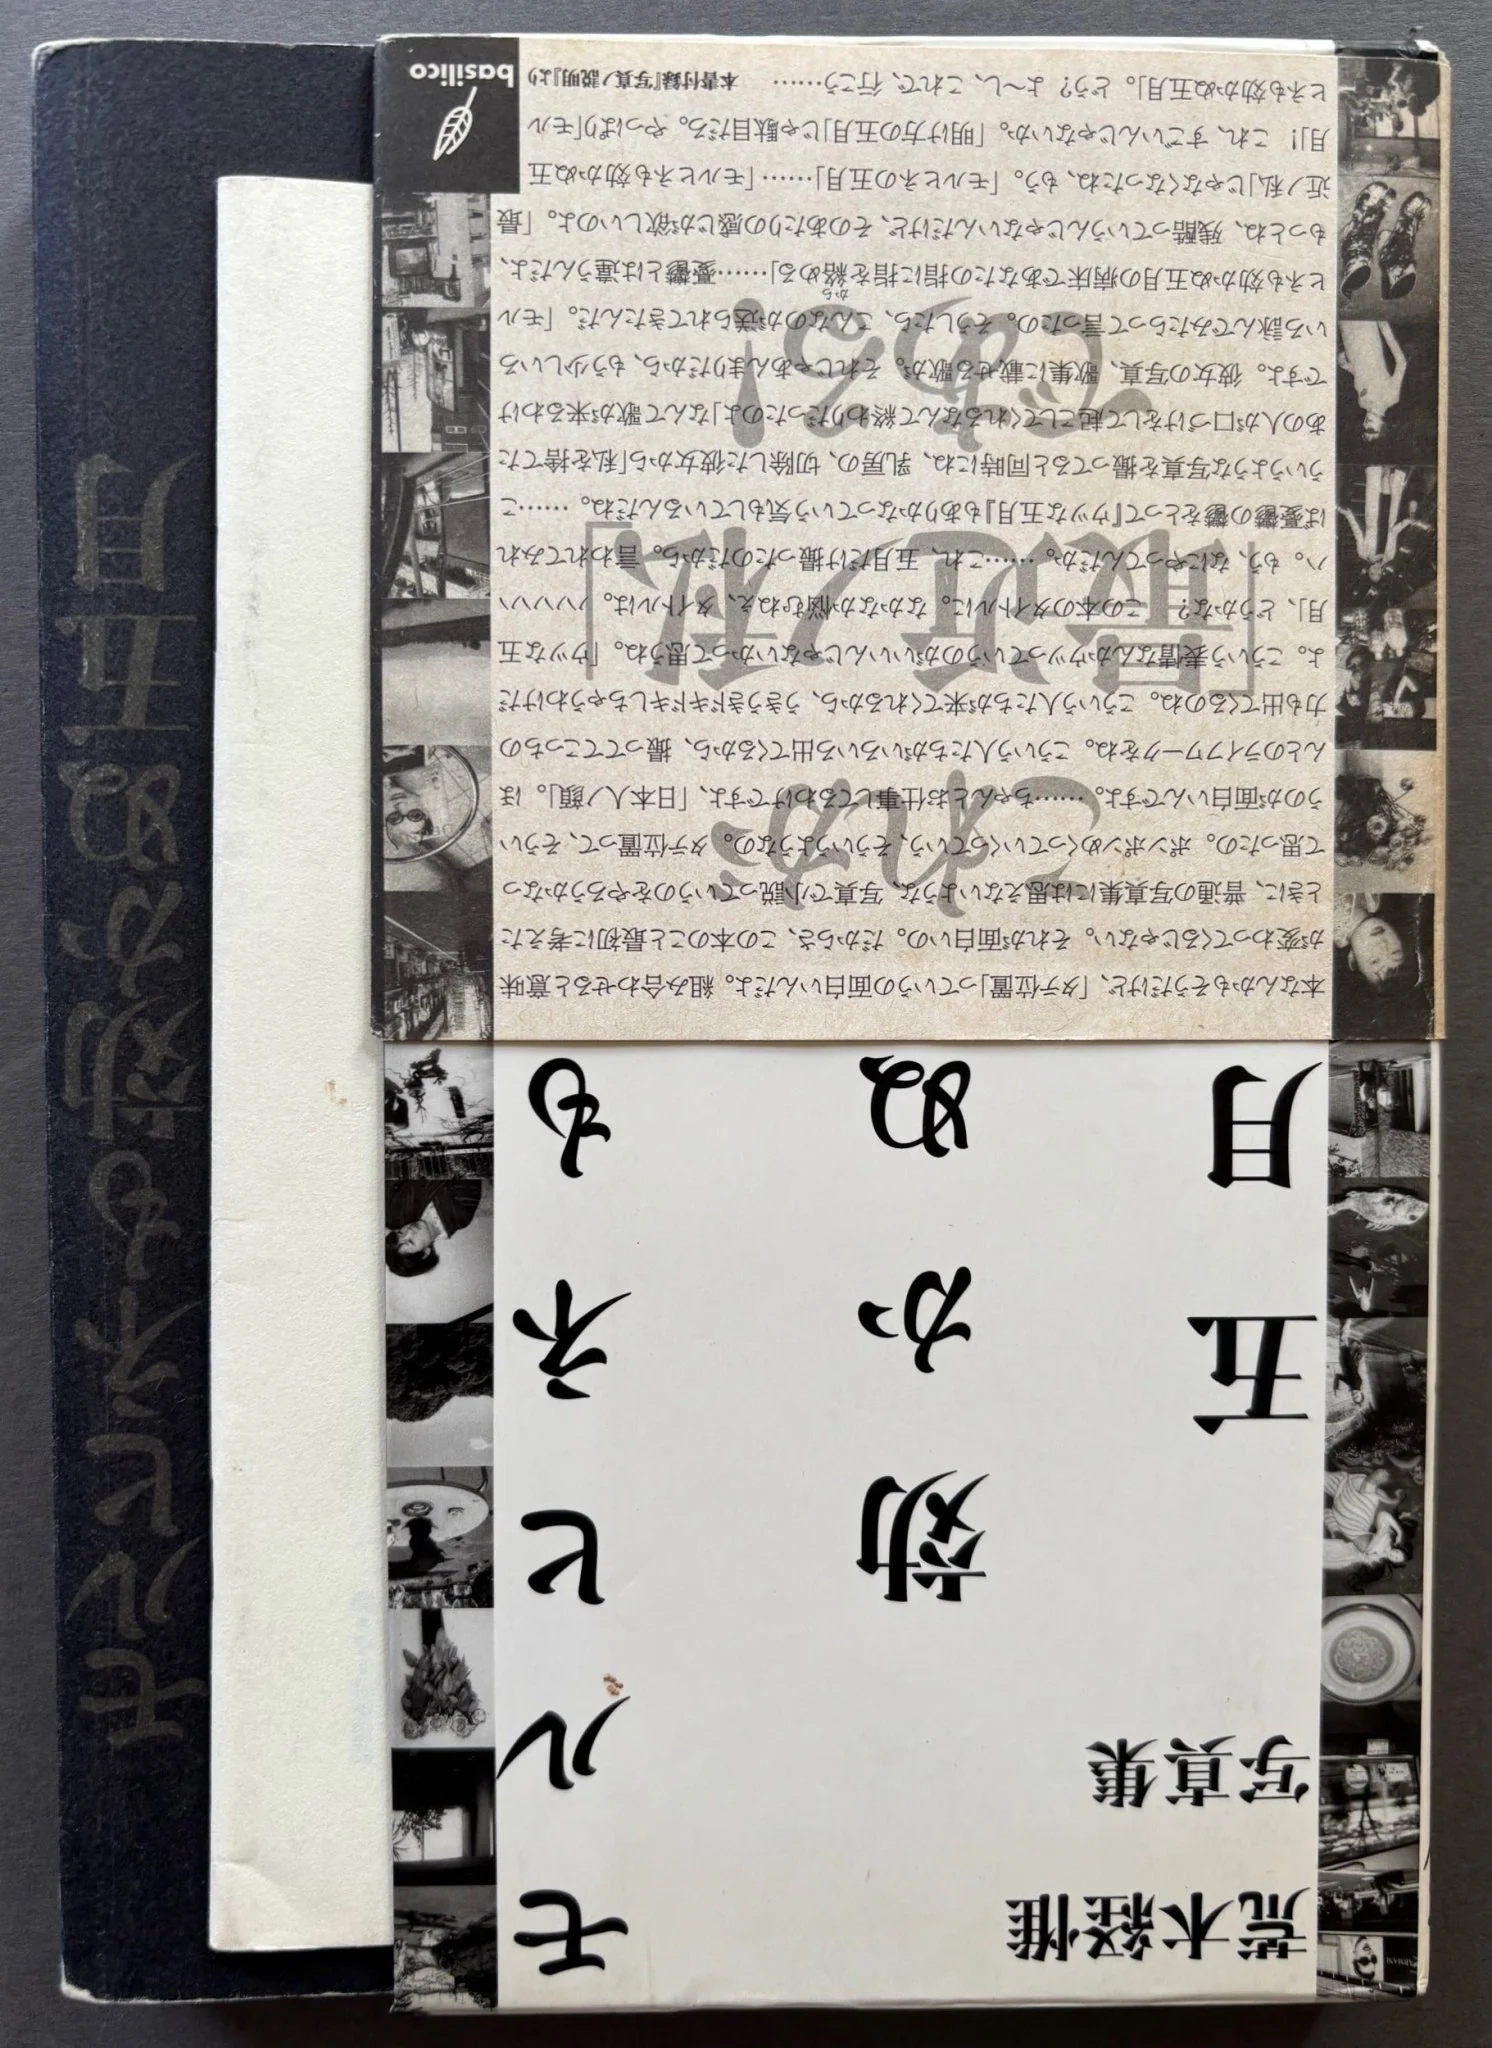 荒木経惟
写真集
モルヒネも
効かぬ
五月
これが
「最近ノ私」
である!
本なんかもそうだけど、「タテ位置」っていうの面白いんだよ。組み合わせると意味
が変わってくるじゃない。それが面白いの。だからさ、この本のこと最初に考えた
ときに、普通の写真集には思えないような、写真で小説っていうのをやろうかなっ
て思ったの。ポンポンめくっていくっていう、そういうようなの。タテ位置って、そうい
うのが面白いんですよ。……ちゃんとお仕事してるわけですよ、「日本人ノ顔」。ほ
んとのライフワークをね。こういう人たちがいろいろ出てくるから、撮っててこっちの
力も出てくるのね。こういう人たちが来てくれるから、うきうきドキドキしちゃうわけだ
よ。こういう表情なんかウッっていうのがいいんじゃないかって思うね。「ウツな五
月」、どうかな? この本のタイトルに。なかなか悩むねえ、タイトルは。ハハハハ
ハ。もう、なにやってんだか。……これ、五月だけ撮ったのだから。言われてみれ
ば憂鬱の鬱をとって『ウツな五月』もありかなっていう気もしているんだね。……こ
ういうような写真を撮ってると同時にね、乳房の、切除した彼女から「私を捨てた
あの人が口づけをして起こしてくれるなんて終わりだったのよ」なんて歌が来るわけ
ですよ。彼女の写真、歌集に載せる歌が。それじゃあんまりだから、もう少しいろ
いろ詠んでみたらって言ったの。そうしたら、こんなのが送られてきたんだ。「モル
ヒネも効かぬ五月の病床であなたの指に指を絡(から)める」……憂鬱とは違うんだよ、
もっとね、残酷っていうんじゃないんだけど、そのあたりの感じが欲しいのよ。「最
近ノ私」じゃなくなったね、もう。「モルヒネの五月」……「モルヒネも効かぬ五
月」! これ、すごいんじゃないか。「明け方の五月」じゃ駄目だろ。やっぱり「モル
ヒネも効かぬ五月」。どう? よ〜し、これで、行こう……… 本書付録『写真ノ説明』より
basilico
モルヒネも効かぬ五月